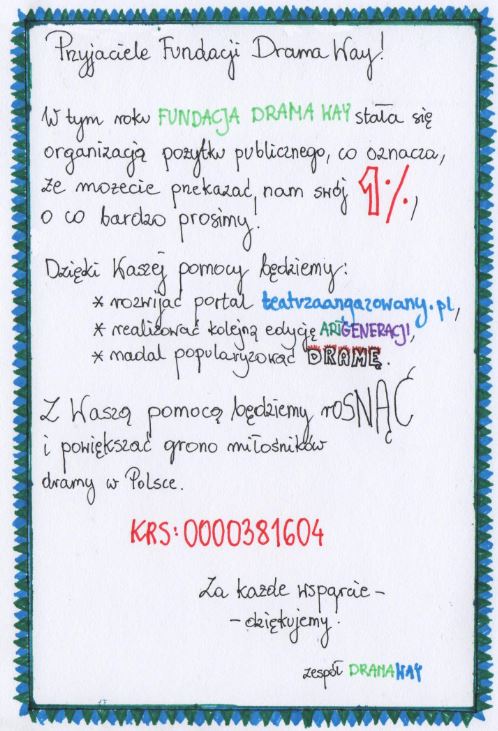 Przyjaciele Fundacji Drama Way!
W tym roku FUNDACJA DRAMA WAY stała się
organizacją pożytku publicznego, co oznacza,
że możecie przekazać nam swój 1%,
o co bardzo prosimy!
Dzięki Waszej pomocy będziemy:
* rozwijać portal teatrzaangazowany.pl,
* realizować kolejną edycję ARTGENERACJI,
* nadal popularyzować DRAMĘ.
Z Waszą pomocą będziemy rOSNĄĆ
i powiększać grono miłośników
dramy w Polsce.
KRS: 0000381604
Za każde wsparcie -
- dziękujemy.
zespół DRAMAWAY